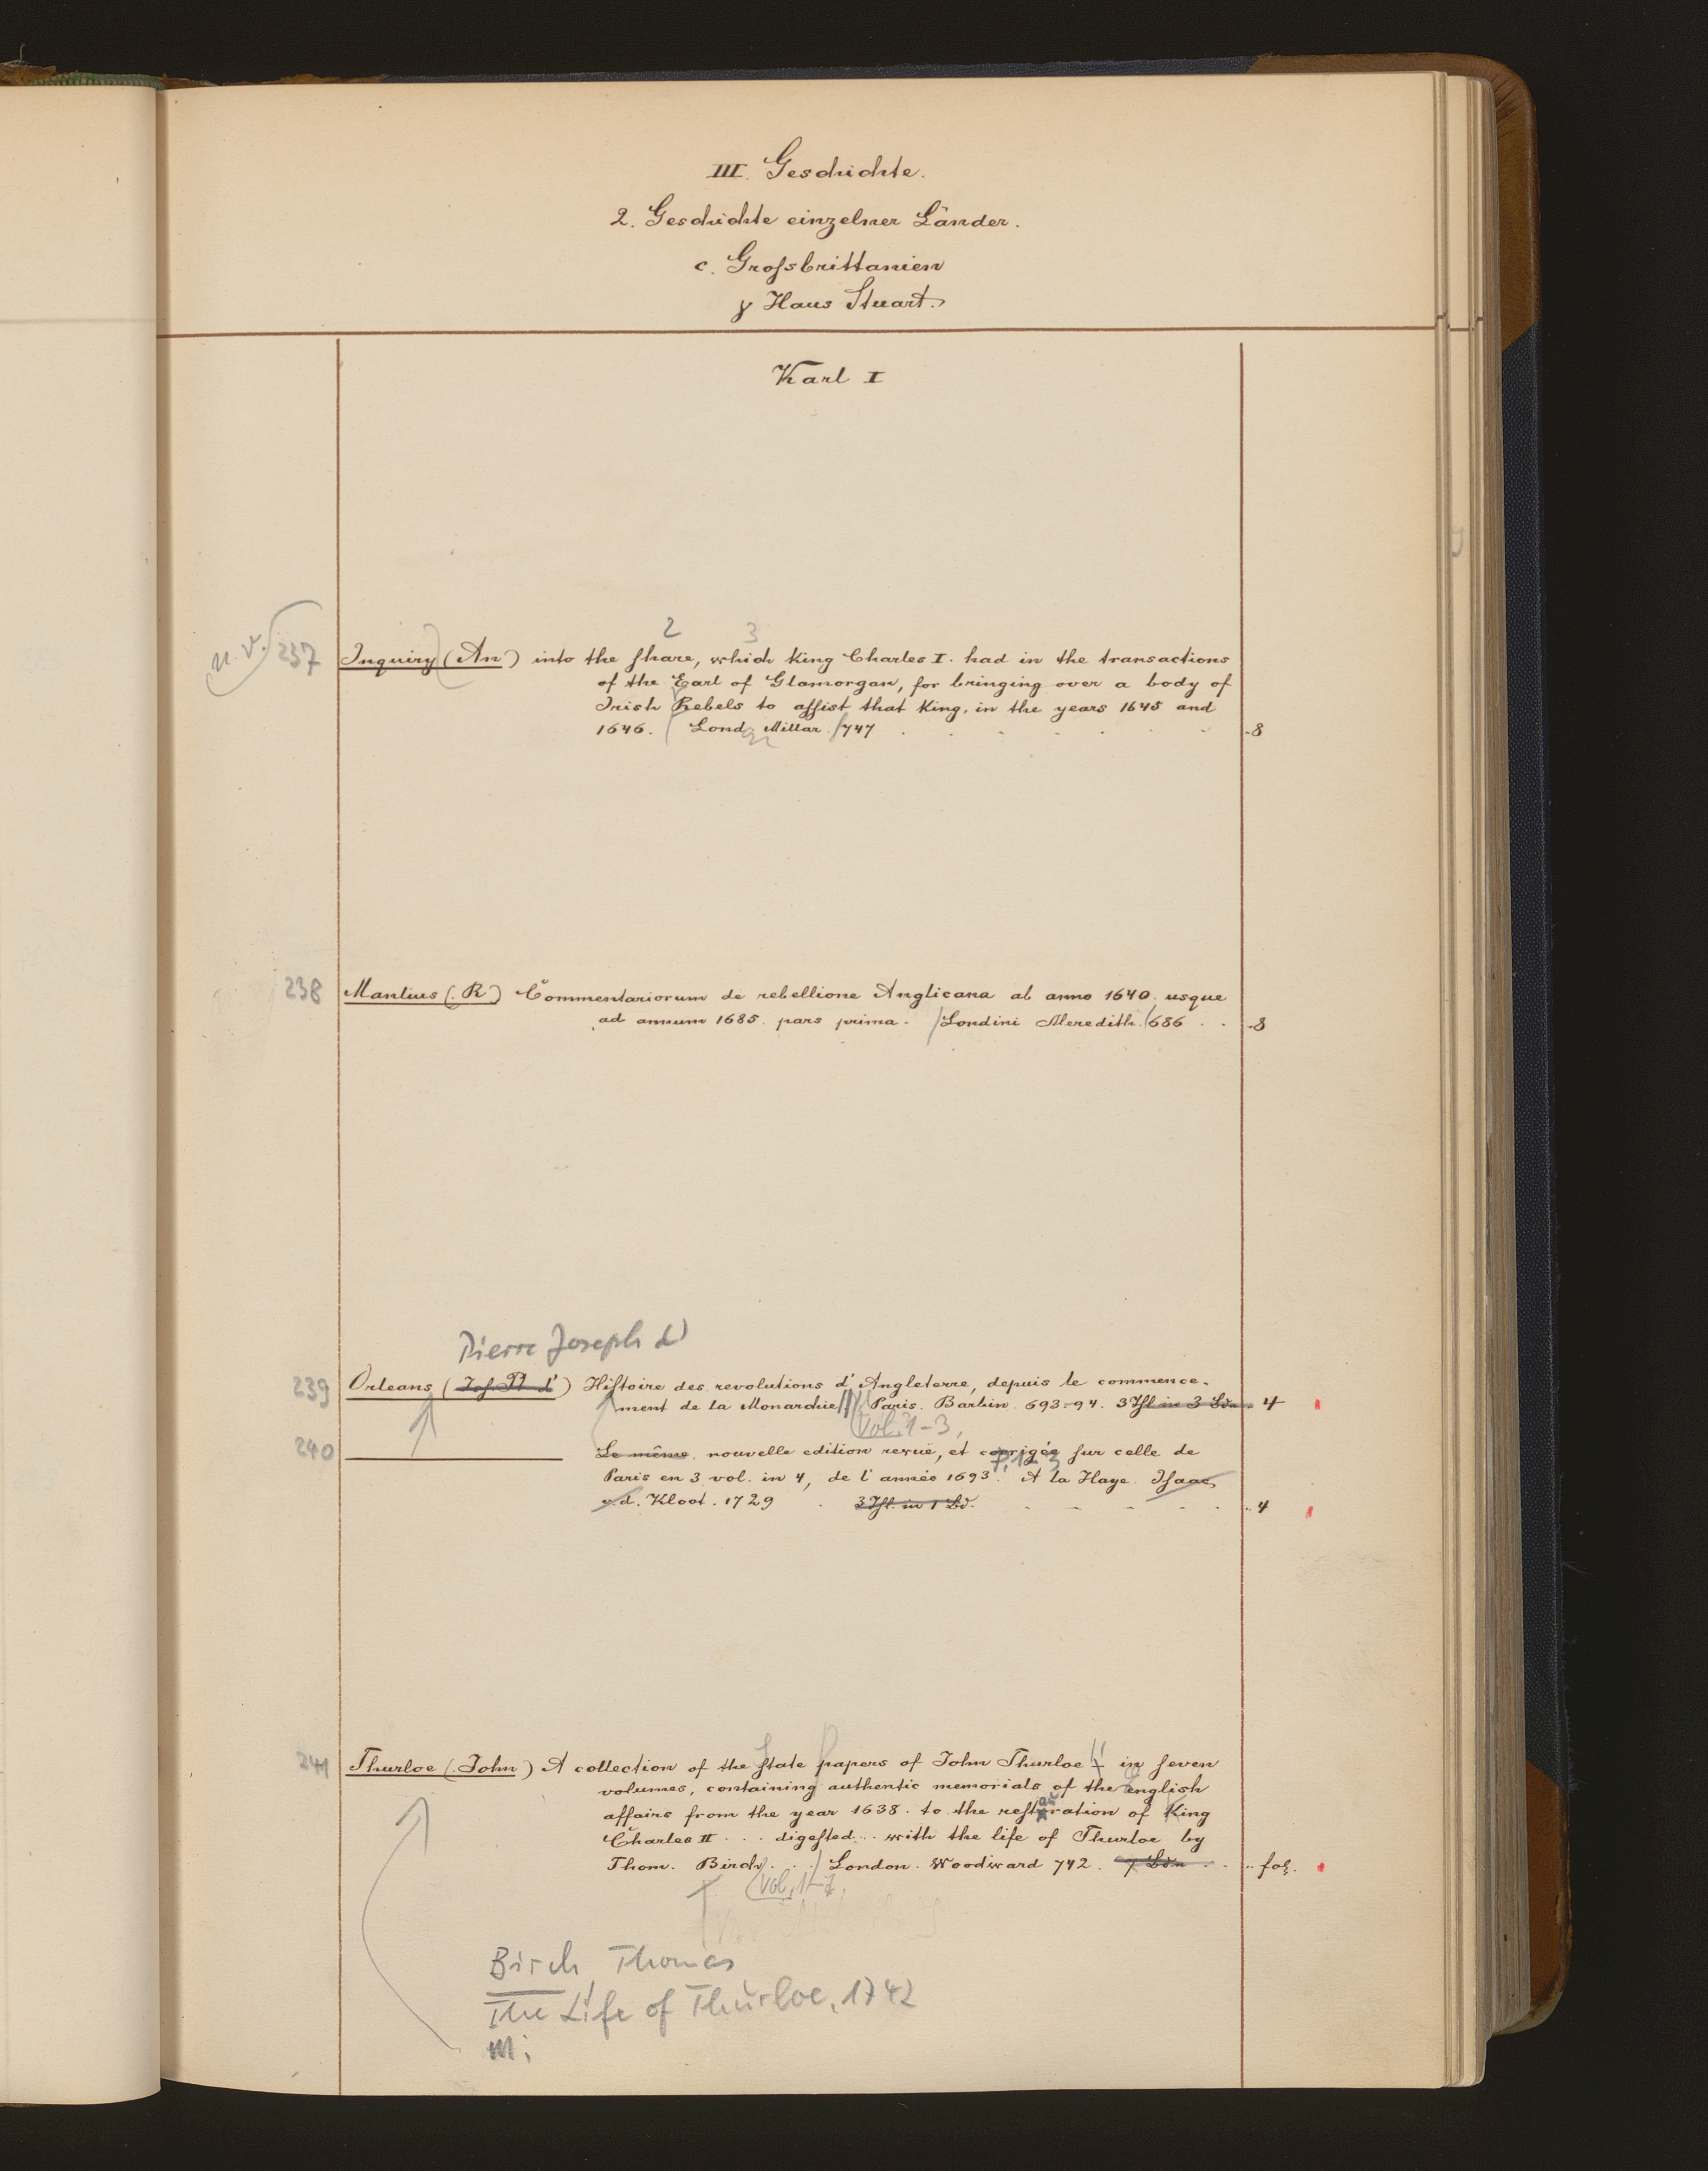 III. Geschichte.
2. Geschichte einzelner Länder.
c. Grossbrittanien
γ Haus Stuart.
Karl I
2 3
n. v. 237 Inquiry (An) into the share, which King Charles I. had in the transactions
of the Earl of Glamorgan, for bringing over a body of
Irish Rebels to assist that King, in the years 1645 and
1646. Lond. Millar. 747 8
238 Manlius (R) Commentariorum de rebellione Anglicana ab anno 1640. usque
ad annum 1685. pars prima. Londini Meredith. 686 8
Pierre Joseph d'
239 Orleans (Jos. Pt d') Histoire des revolutions d'Angleterre, depuis le commence-
ment de la Monarchie Paris. Barbin. 693-94. 3 Thl in 3 Bdn 4
Vol. 1-3,
240 Le même. nouvelle edition revuë, et corrigée sur celle de
P. 1-3
Paris en 3 vol. in 4, de l'année 1693. A la Haye. Isaac
v. d. Kloot. 1729 3 Thl. in 1 Bd. 4
241 Thurloe (John) A collection of the state papers of John Thurloe in seven
volumes, containing authentic memorials of the english
affairs from the year 1638. to the restauration of King
Charles II ... digested... with the life of Thurloe by
Thom. Birch. London. Woodward 742. 7 Bdn fol.
Vol. 1-7,
Birch Thomas
The Life of Thurloe, 1742
in: